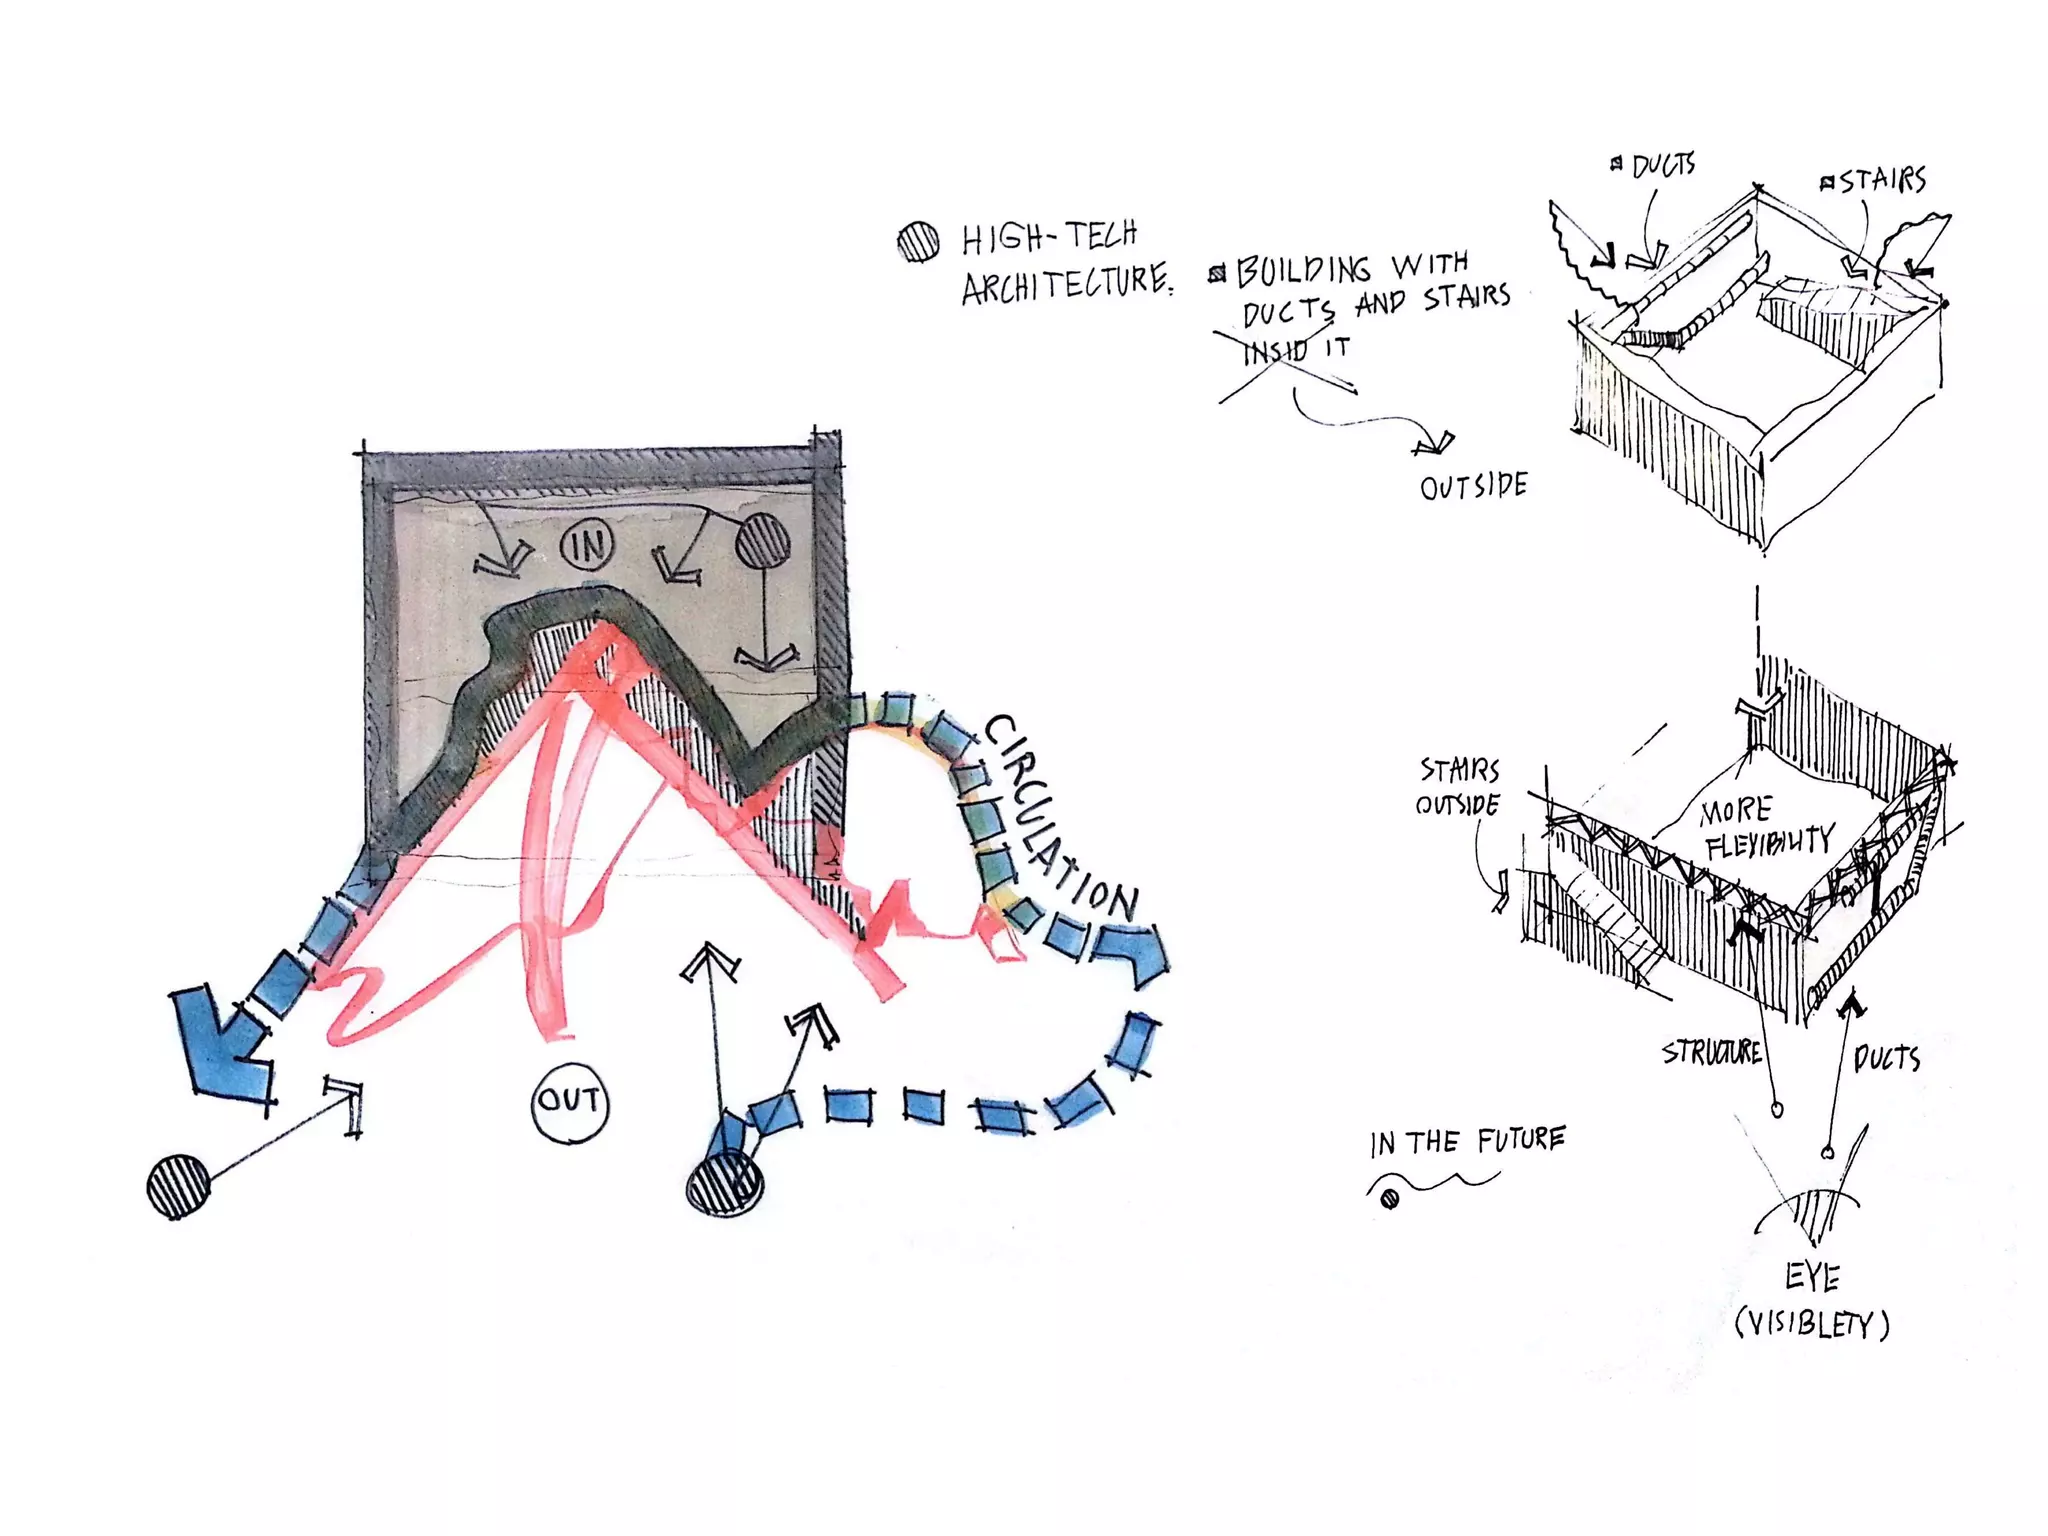 DUCTS
STAIRS
HIGH-TECH
ARCHITECTURE:
BUILDING WITH
DUCTS AND STAIRS
INSID IT
OUTSIDE
IN
CIRCULATION
OUT
STAIRS
OUTSIDE
MORE
FLEXIBILITY
STRUCTURE
DUCTS
IN THE FUTURE
EYE
(VISIBLETY)